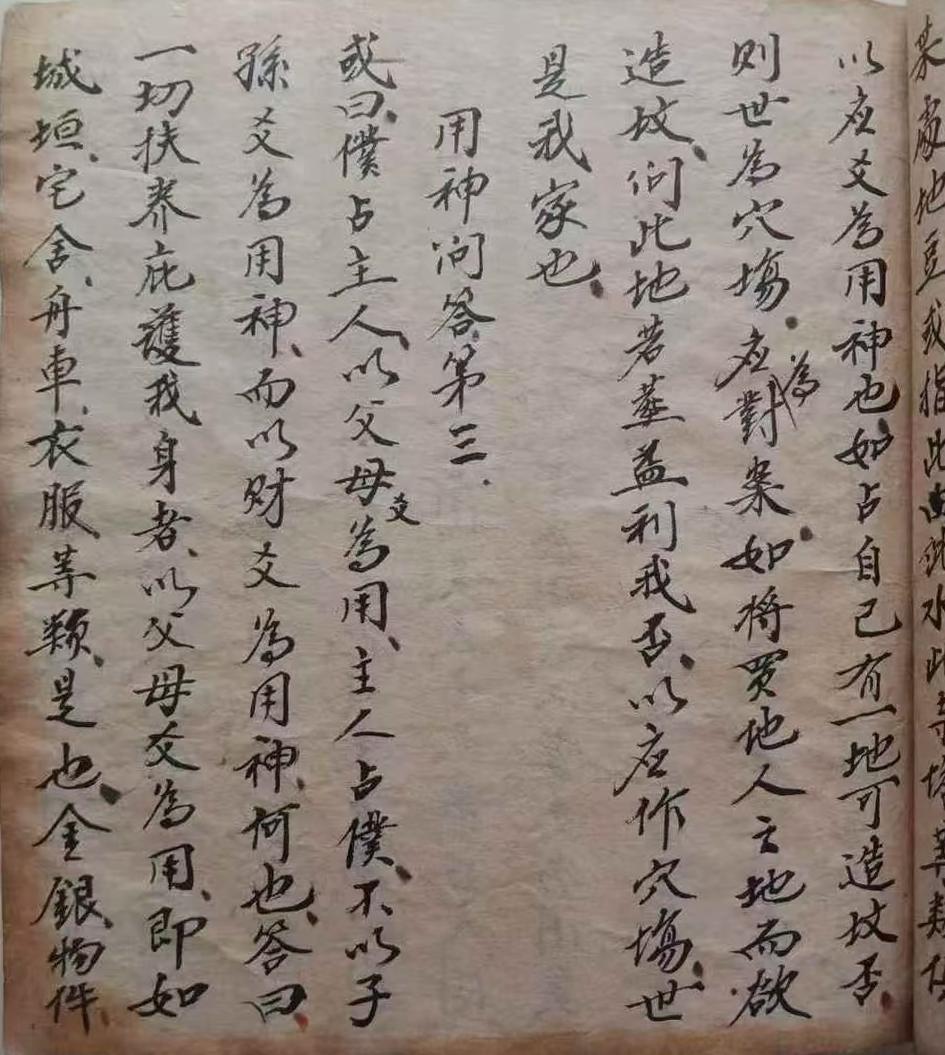 某處地豆或指此
以应爻為用神也、如占自己有一地可造坟否、
則世為穴塲、应為對案、如将買地人之地而欲
造坟、们此地若葢益利我否、以应作穴塲、世
是我家也、
用神问答第三、
或曰、僕占主人、以父母爻為用、主人占僕、不以子
孫爻為用神、而以财爻為用神、何也、答曰、
一切扶养庇護我身者、以父母爻為用、即如
城垣、宅舍、舟車、衣服、等類、是也、金銀、物件、